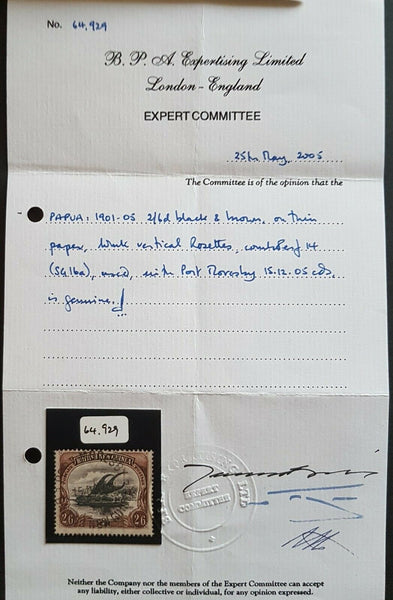 No. 64,929
B. P. A. Expertising Limited
London - England
EXPERT COMMITTEE
25th May, 2005
The Committee is of the opinion that the
PAPUA: 1901-05 2/6d black & brown, on thin
paper, wmk vertical Rosettes, comb perf 14
(SG 16a), used, with Port Moresby 15.12.05 cds,
is genuine.
64,929
BRITISH NEW GUINEA
2/6 2/6
EXPERT
COMMITTEE
Neither the Company nor the members of the Expert Committee can accept
any liability, either collective or individual, for any opinion expressed.